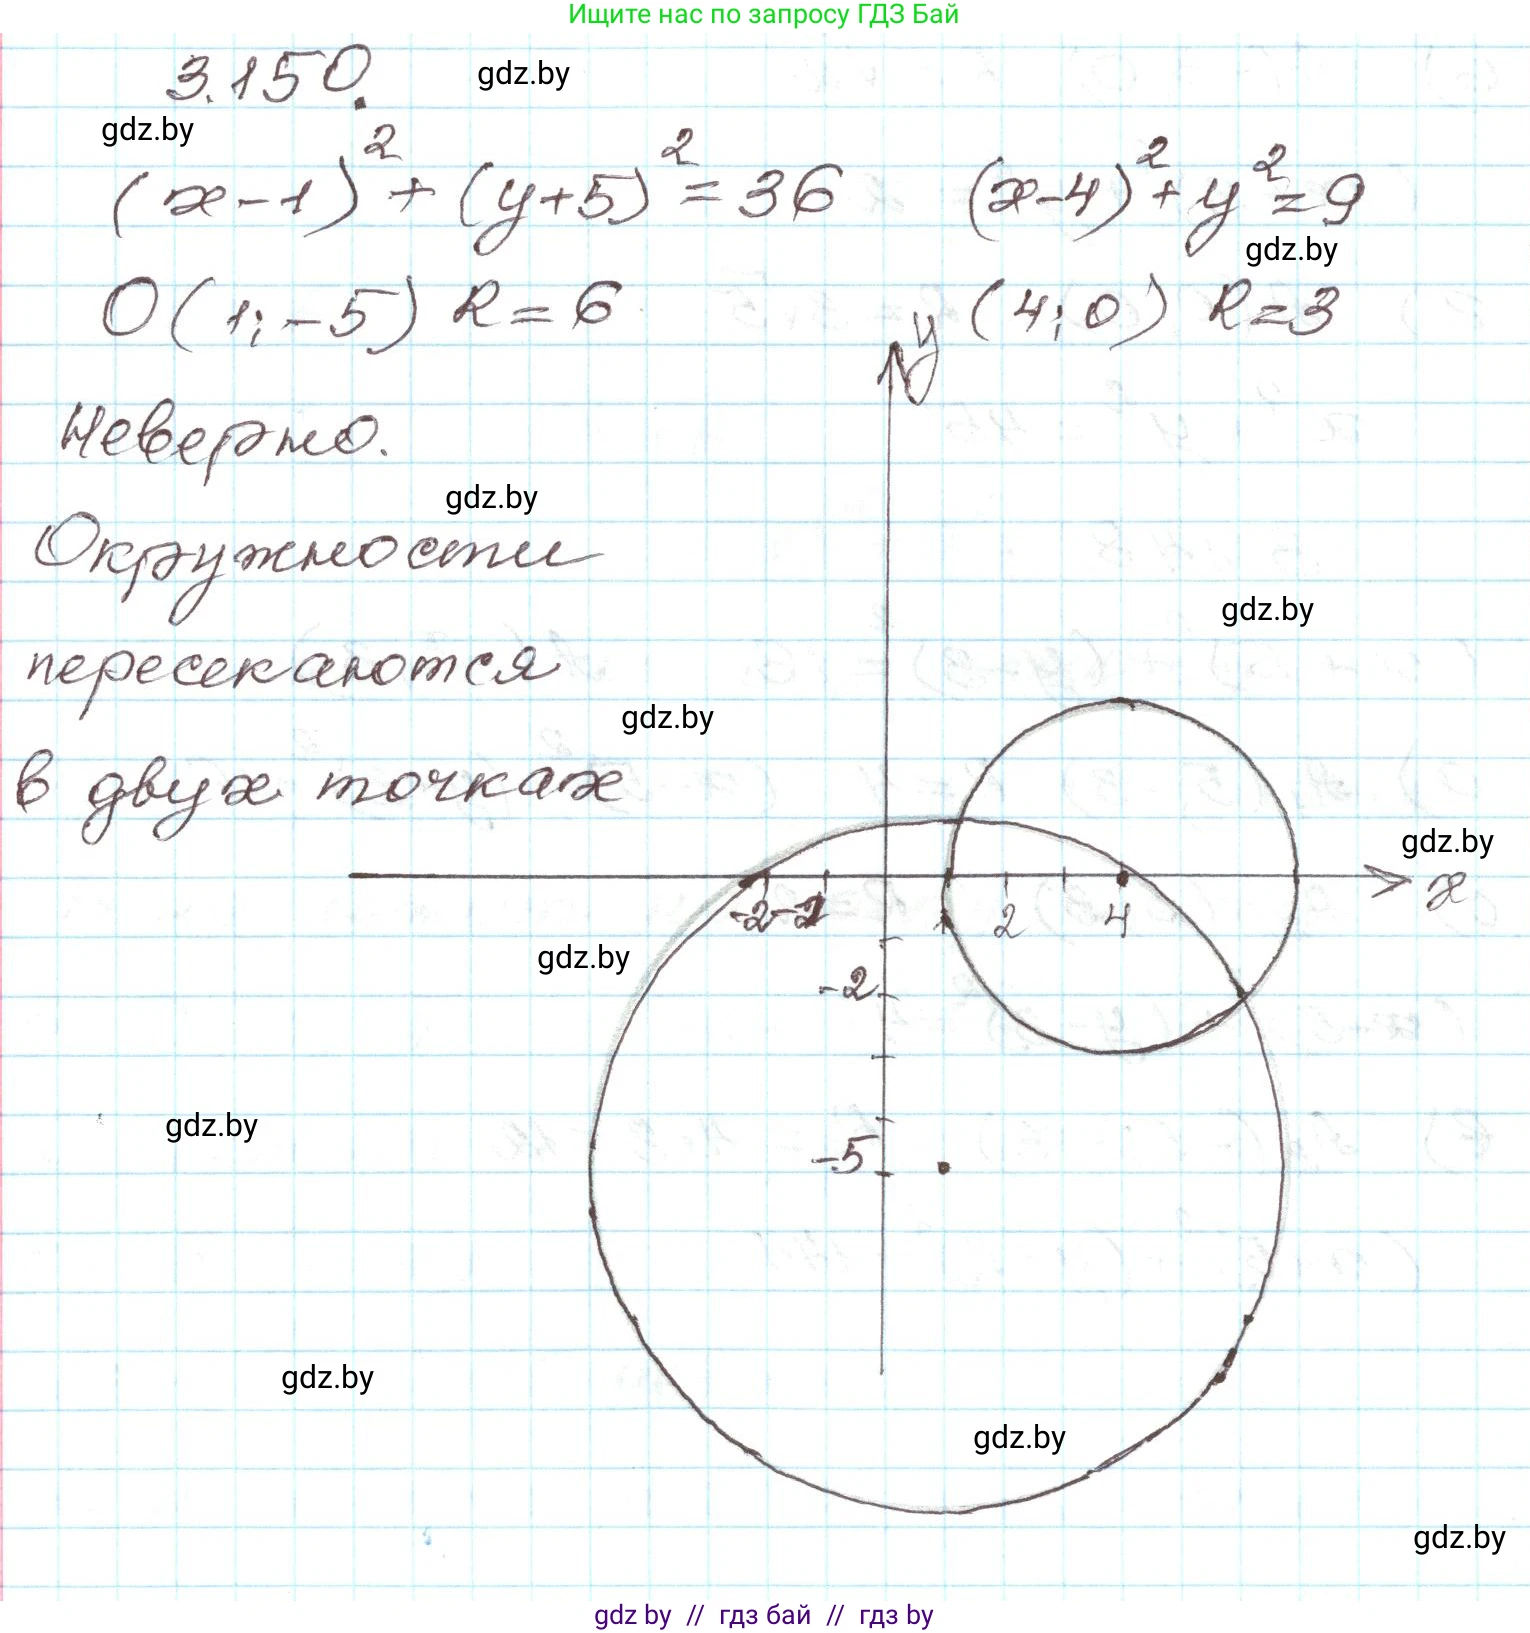 Ищите нас по запросу ГДЗ Бай
3.150.
gdz.by
gdz.by
(x-1)² + (y+5)² = 36
(x-4)² + y² = 9
gdz.by
O(1;-5) R=6
(4;0) R=3
y
Неверно.
gdz.by
Окружности
gdz.by
пересекаются
gdz.by
в двух точках
gdz.by
x
-2
1
2
4
gdz.by
-2
gdz.by
-5
gdz.by
gdz.by
gdz.by
gdz by // гдз бай // гдз by